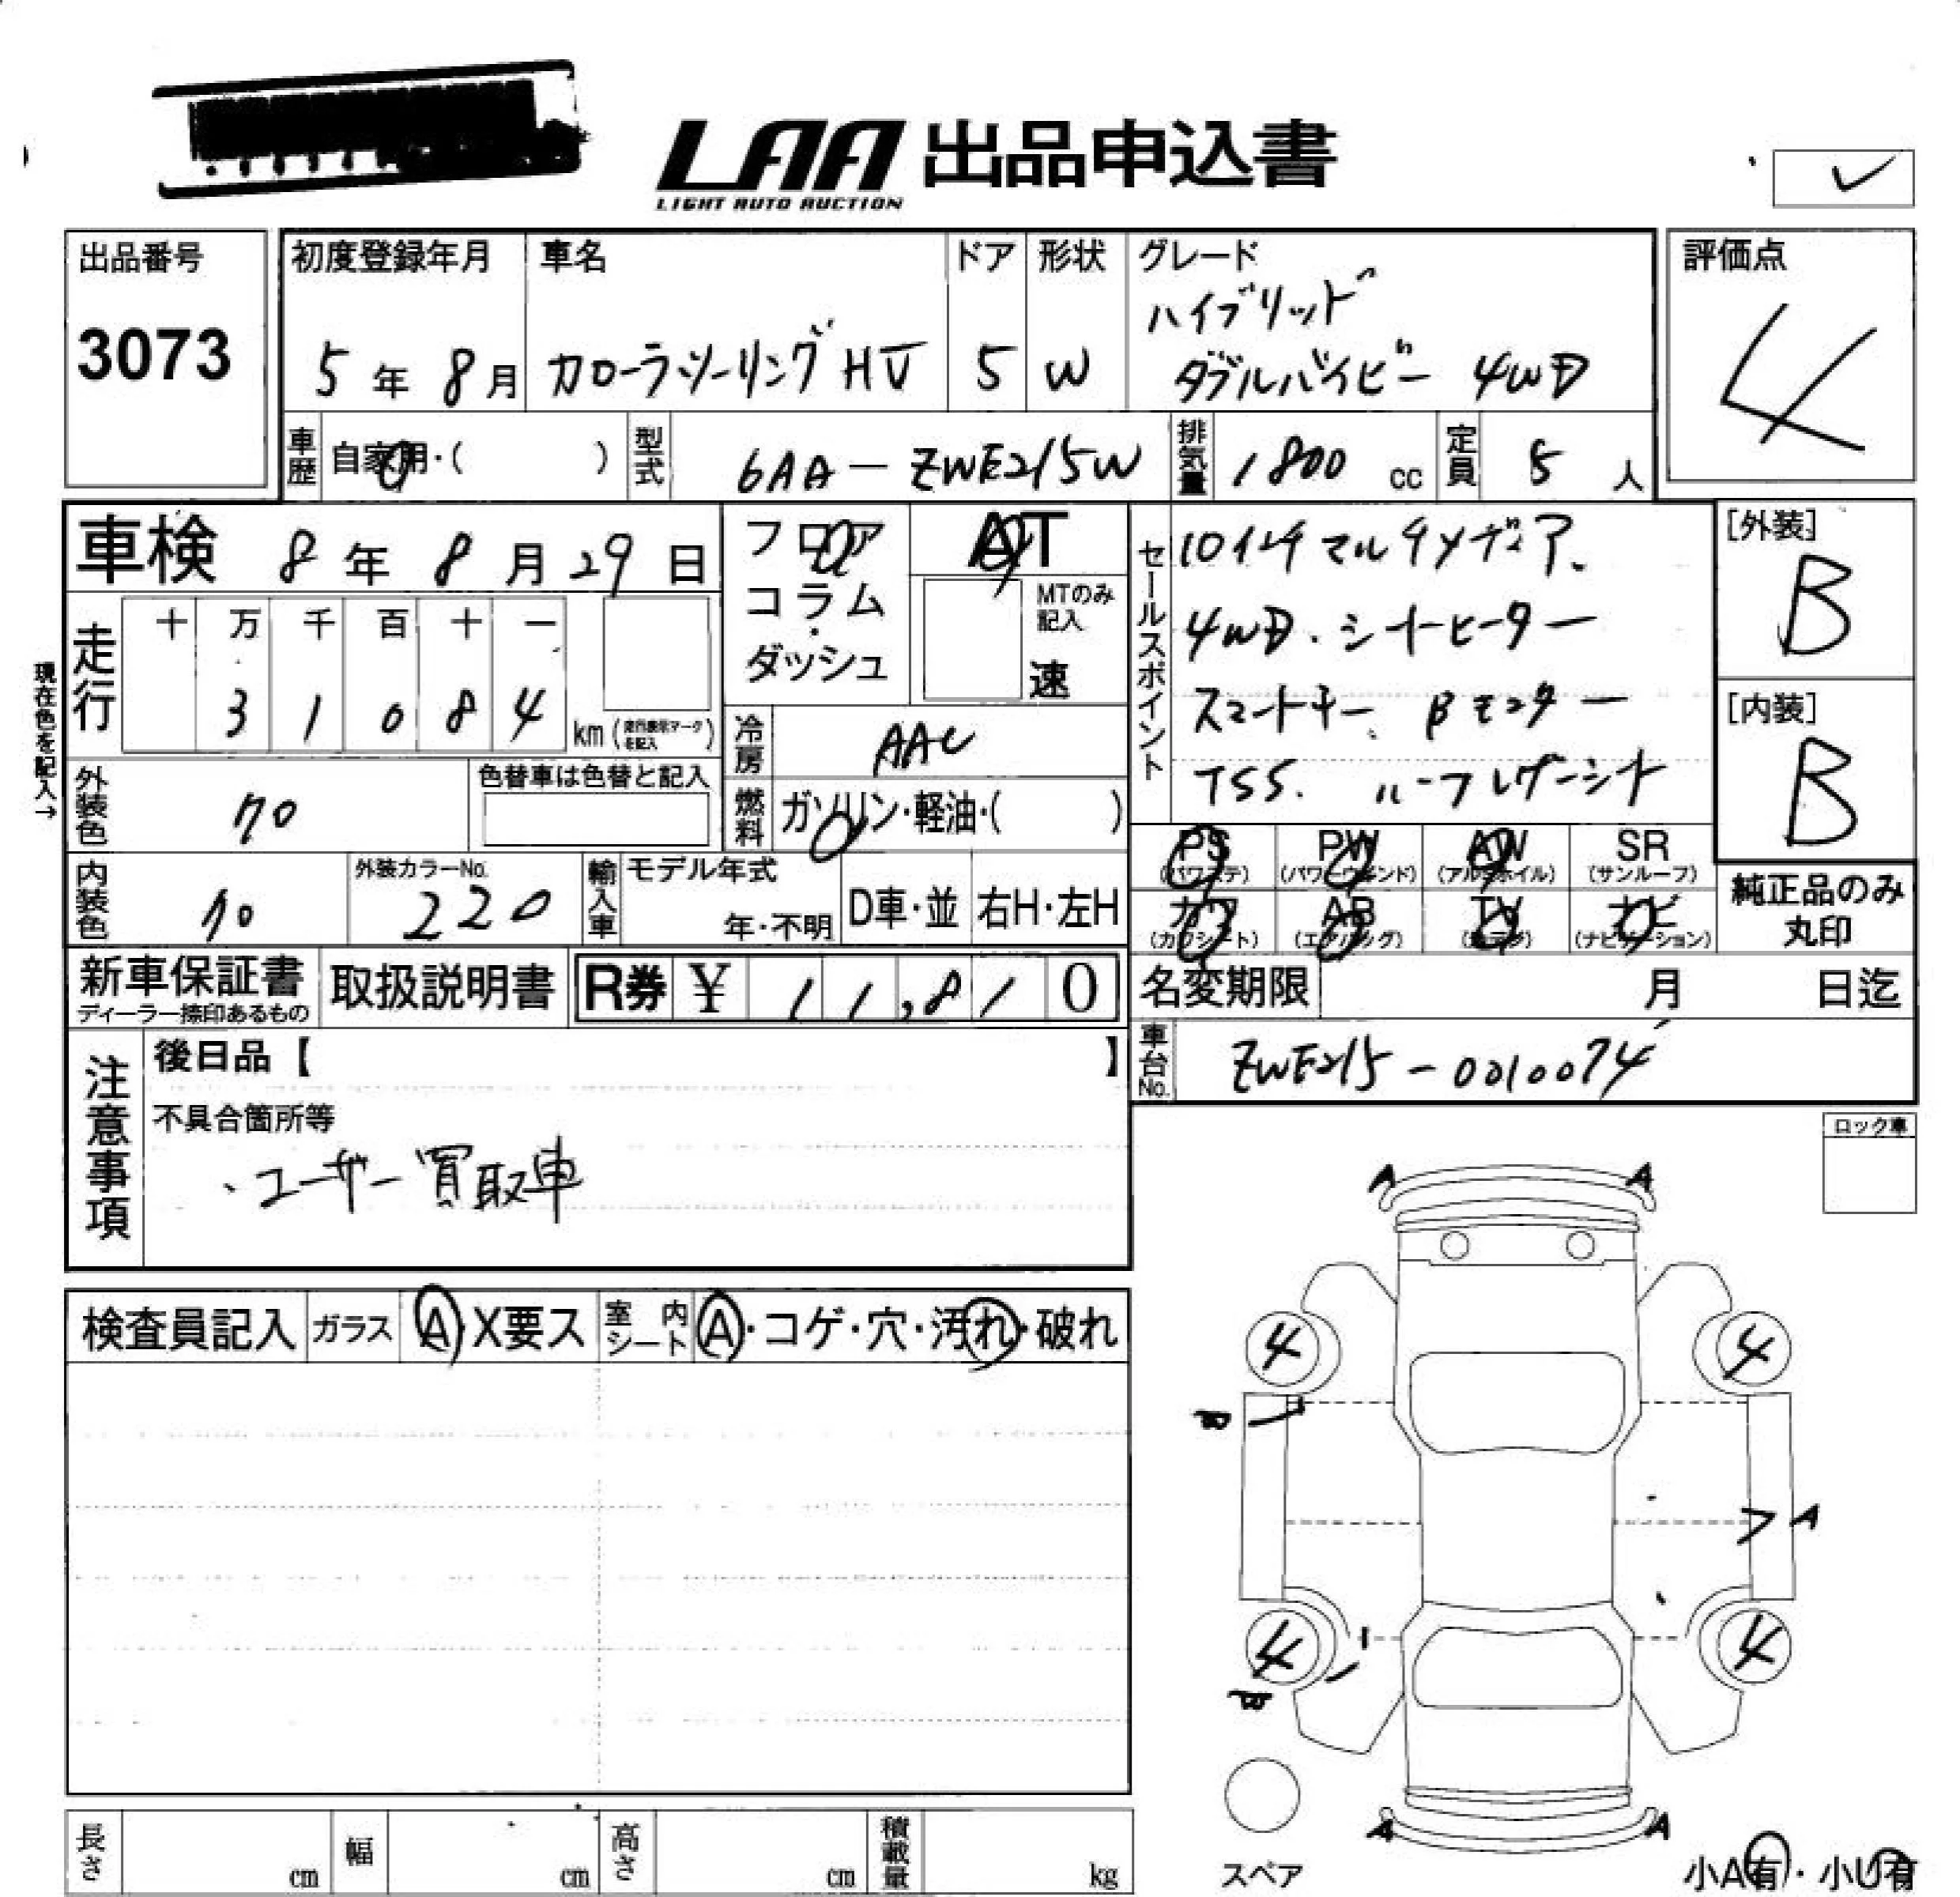 LAA 出品申込書
LIGHT AUTO AUCTION
出品番号
3073
初度登録年月
5年8月
車名
カローラツーリングHV
ドア
5
形状
W
グレード
ハイブリッド
ダブルバイビー 4WD
評価点
4
車歴 自家用・( )
型式 6AA-ZWE215W
排気量 1800 cc
定員 5 人
車検 8年8月29日
フロア
コラム
・
ダッシュ
AT
MTのみ記入
速
セールスポイント
10インチマルチメディア.
4WD.シートヒーター
スマートキー. Bモニター
TSS. ルーフレザーシート
[外装]
B
[内装]
B
現在色を記入→
走行
十 万 千 百 十 一
3 1 0 8 4
km(走行表示マークを記入)
冷房 AAC
燃料 ガソリン・軽油・( )
外装色 クロ
色替車は色替と記入
内装色 クロ
外装カラーNo.
220
輸入車
モデル年式
年・不明
D車・並
右H・左H
PS (パワステ)
PW (パワーウインド)
AW (アルミホイル)
SR (サンルーフ)
カワ (カワシート)
AB (エアバッグ)
TV
ナビ (ナビゲーション)
純正品のみ
丸印
新車保証書
ディーラー捺印あるもの
取扱説明書
R券 ¥ 11,810
名変期限 月 日迄
車台No. ZWE215-0010074
注意事項
後日品【 】
不具合箇所等
・ユーザー買取車
ロック車
検査員記入 ガラス A・X要ス 室内シート A・コゲ・穴・汚れ・破れ
A A
4 4
B
A
4 4
B
A A
スペア
小A有・小U有
長さ cm 幅 cm 高さ cm 積載量 kg